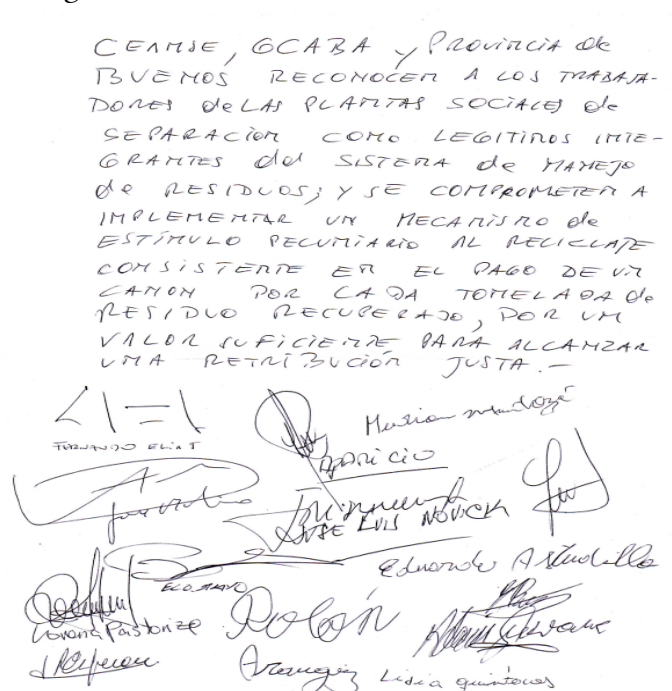 CEAMSE, GCABA y PROVINCIA de
BUENOS RECONOCEN A LOS TRABAJA-
DORES de LAS PLANTAS SOCIALES de
SEPARACIÓN COMO LEGITIMOS INTE-
GRANTES del SISTEMA de MANEJO
de RESIDUOS; Y SE COMPROMETEN A
IMPLEMENTAR UN MECANISMO de
ESTÍMULO PECUNIARIO AL RECICLAJE
CONSISTENTE EN EL PAGO DE UN
CANON POR CADA TONELADA de
RESIDUO RECUPERADO, POR UN
VALOR SUFICIENTE PARA ALCANZAR
UNA RETRIBUCIÓN JUSTA.—
FERNANDO ELIAS
APARICIO
JOSE LUIS NOVICK
Eduardo Astudillo
Lorena Pastoriza
Rolón
Lidia quinteros